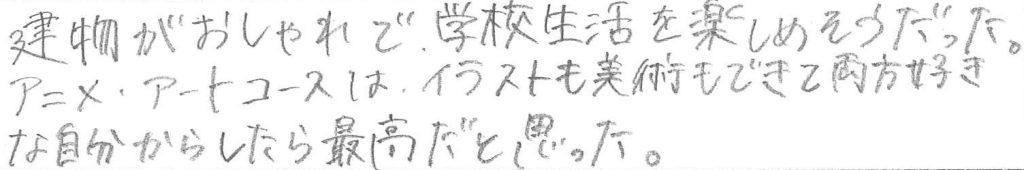 建物がおしゃれで、学校生活を楽しめそうだった。
アニメ・アートコースは、イラストも美術もできて両方好き
な自分からしたら最高だと思った。